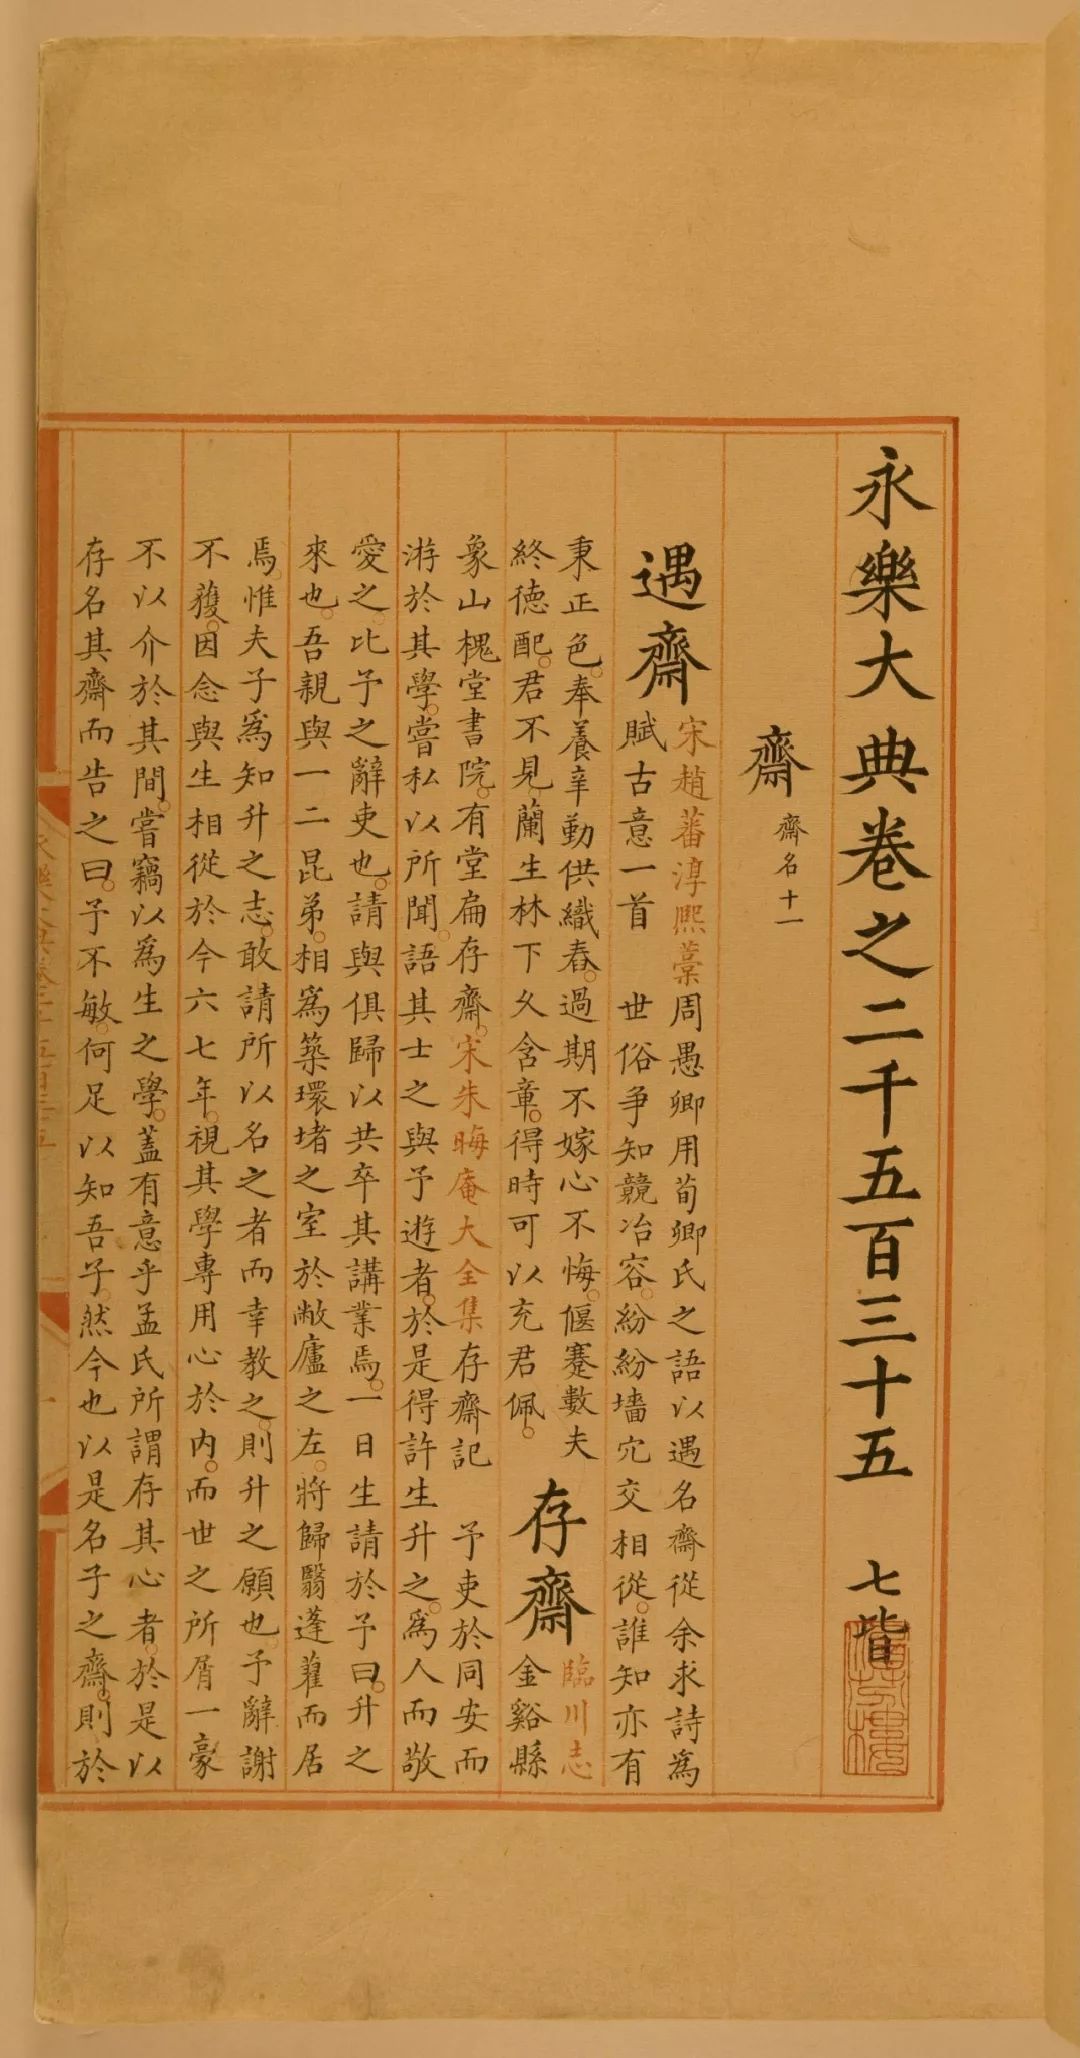 永樂大典卷之二千五百三十五 七皆
齋 齋名十一
遇齋
宋趙蕃淳熙藁周愚卿用荀卿氏之語以遇名齋從余求詩爲
賦古意一首 世俗爭知競冶容紛紛墻宂交相從誰知亦有
秉正色奉養辛勤供織舂過期不嫁心不悔偃蹇數夫
終德配君不見蘭生林下久含章得時可以充君佩
存齋
臨川志
金谿縣
象山槐堂書院有堂扁存齋宋朱晦庵大全集存齋記 予吏於同安而
游於其學嘗私以所聞語其士之與予遊者於是得許生升之爲人而敬
愛之比予之辭吏也請與俱歸以共卒其講業焉一日生請於予曰升之
來也吾親與一二昆弟相爲築環堵之室於敝廬之左將歸翳蓬藋而居
焉惟夫子爲知升之志敢請所以名之者而幸教之則升之願也予辭謝
不獲因念與生相從於今六七年視其學專用心於内而世之所屑一豪
不以介於其間嘗竊以爲生之學蓋有意乎孟氏所謂存其心者於是以
存名其齋而告之曰予不敏何足以知吾子然今也以是名子之齋則於